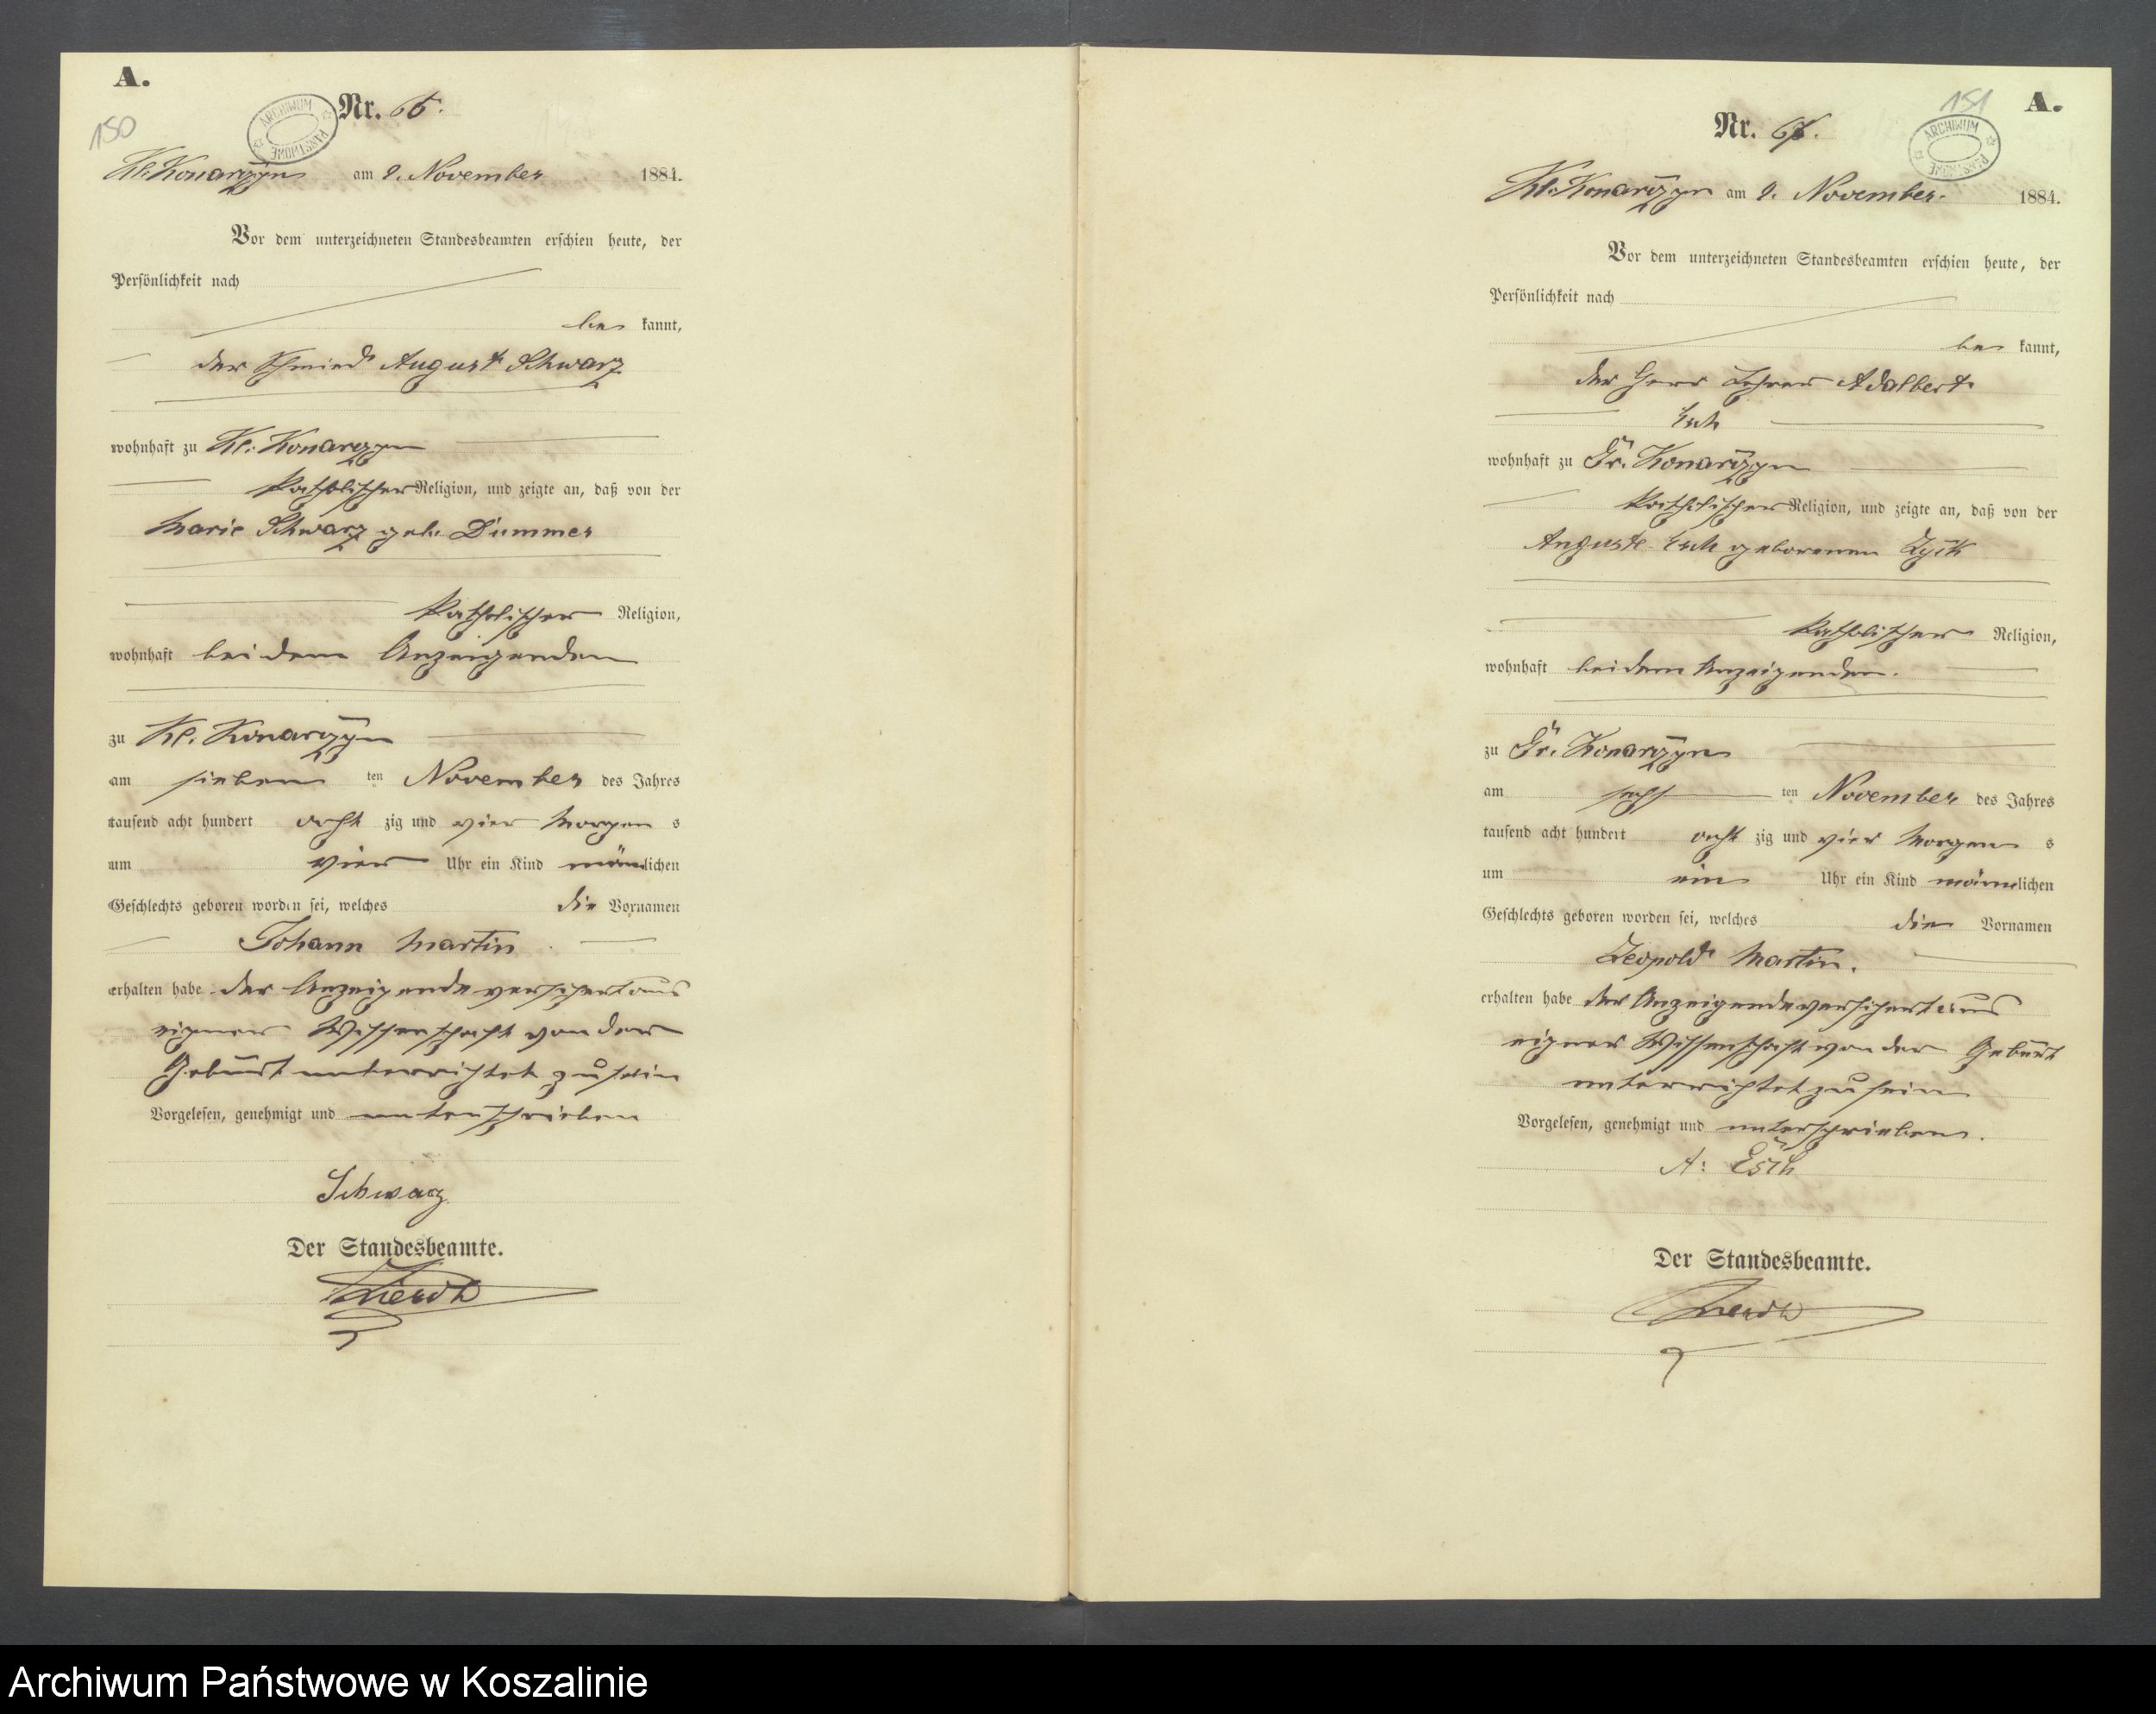 A.
150
ARCHIWUM PAŃSTWOWE
Nr. 65.
Kl. Konarczyn am 9. November 1884.
Vor dem unterzeichneten Standesbeamten erschien heute, der
Persönlichkeit nach
be kannt,
der Schmied August Schwarz
wohnhaft zu Kl. Konarczyn
katholischer Religion, und zeigte an, daß von der
Marie Schwarz geb. Dummer
katholischer Religion,
wohnhaft bei dem Anzeigenden
zu Kl. Konarczyn
am sieben ten November des Jahres
tausend acht hundert acht zig und vier Morgen s
um vier Uhr ein Kind männlichen
Geschlechts geboren worden sei, welches die Vornamen
Johann Martin
erhalten habe der Anzeigende versichert aus
eigner Wissenschaft von der
Geburt unterrichtet zu sein
Vorgelesen, genehmigt und unterschrieben
Schwarz
Der Standesbeamte.
151
A.
ARCHIWUM PAŃSTWOWE
Nr.
Kl. Konarczyn am 9. November 1884.
Vor dem unterzeichneten Standesbeamten erschien heute, der
Persönlichkeit nach
be kannt,
der Herr Lehrer Adalbert
Esch
wohnhaft zu Gr. Konarczyn
katholischer Religion, und zeigte an, daß von der
Auguste Esch geborenen
katholischer Religion,
wohnhaft bei dem Anzeigenden.
zu Gr. Konarczyn
am sechs ten November des Jahres
tausend acht hundert acht zig und vier Morgen s
um ein Uhr ein Kind männlichen
Geschlechts geboren worden sei, welches die Vornamen
Leopold Martin.
erhalten habe der Anzeigende versichert aus
eigner Wissenschaft von der Geburt
unterrichtet zu sein
Vorgelesen, genehmigt und unterschrieben.
A. Esch
Der Standesbeamte.
Archiwum Państwowe w Koszalinie